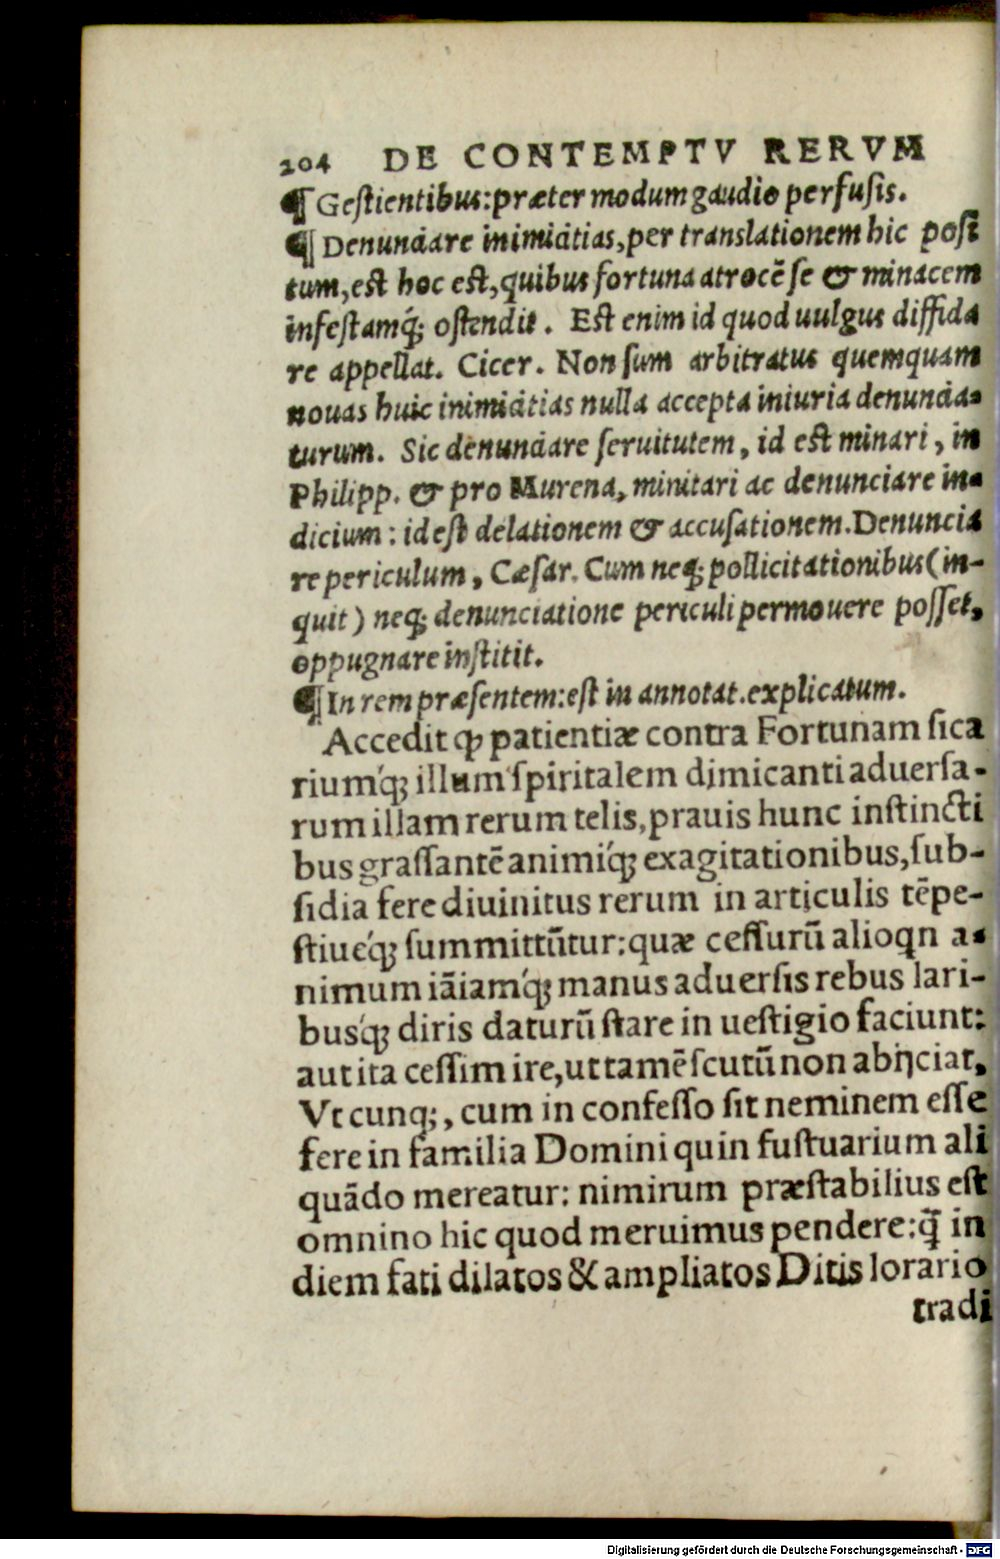 204 DE CONTEMPTV RERVM
¶ Geſtientibus: præter modum gaudio perfuſis.
¶ Denunciare inimicitias, per translationem hic poſi
tum, est hoc est, quibus fortuna atrocē ſe & minacem
infeſtamq́; oſtendit. Eſt enim id quod uulgus diffida
re appellat. Cicer. Non ſum arbitratus quemquam
nouas huic inimicitias nulla accepta iniuria denuncia-
turum. Sic denunciare ſeruitutem, id eſt minari, in
Philipp. & pro Murena, minitari ac denunciare in-
dicium: id eſt delationem & accuſationem. Denuncia
re periculum, Cæſar. Cum neq; pollicitationibus (in-
quit) neq; denunciatione periculi permouere poſſet,
oppugnare inſtitit.
¶ In rem præſentem: eſt in annotat. explicatum.
Accedit ꝙ patientiæ contra Fortunam ſica
riumq́; illum ſpiritalem dimicanti aduerſa-
rum illam rerum telis, prauis hunc inſtincti
bus graſſantē animiq́; exagitationibus, ſub-
ſidia fere diuinitus rerum in articulis tēpe-
ſtiueq́; ſummittūtur: quæ ceſſurū alioqn a-
nimum iāiamq́; manus aduerſis rebus lari-
busq́; diris daturū ſtare in ueſtigio faciunt:
aut ita ceſſim ire, ut tamē ſcutū non abijciat,
Vt cunq;, cum in confeſſo ſit neminem eſſe
fere in familia Domini quin fuſtuarium ali
quādo mereatur: nimirum præſtabilius eſt
omnino hic quod meruimus pendere: q̄ in
diem fati dilatos & ampliatos Ditis lorario
tradi
Digitalisierung gefördert durch die Deutsche Forschungsgemeinschaft - DFG